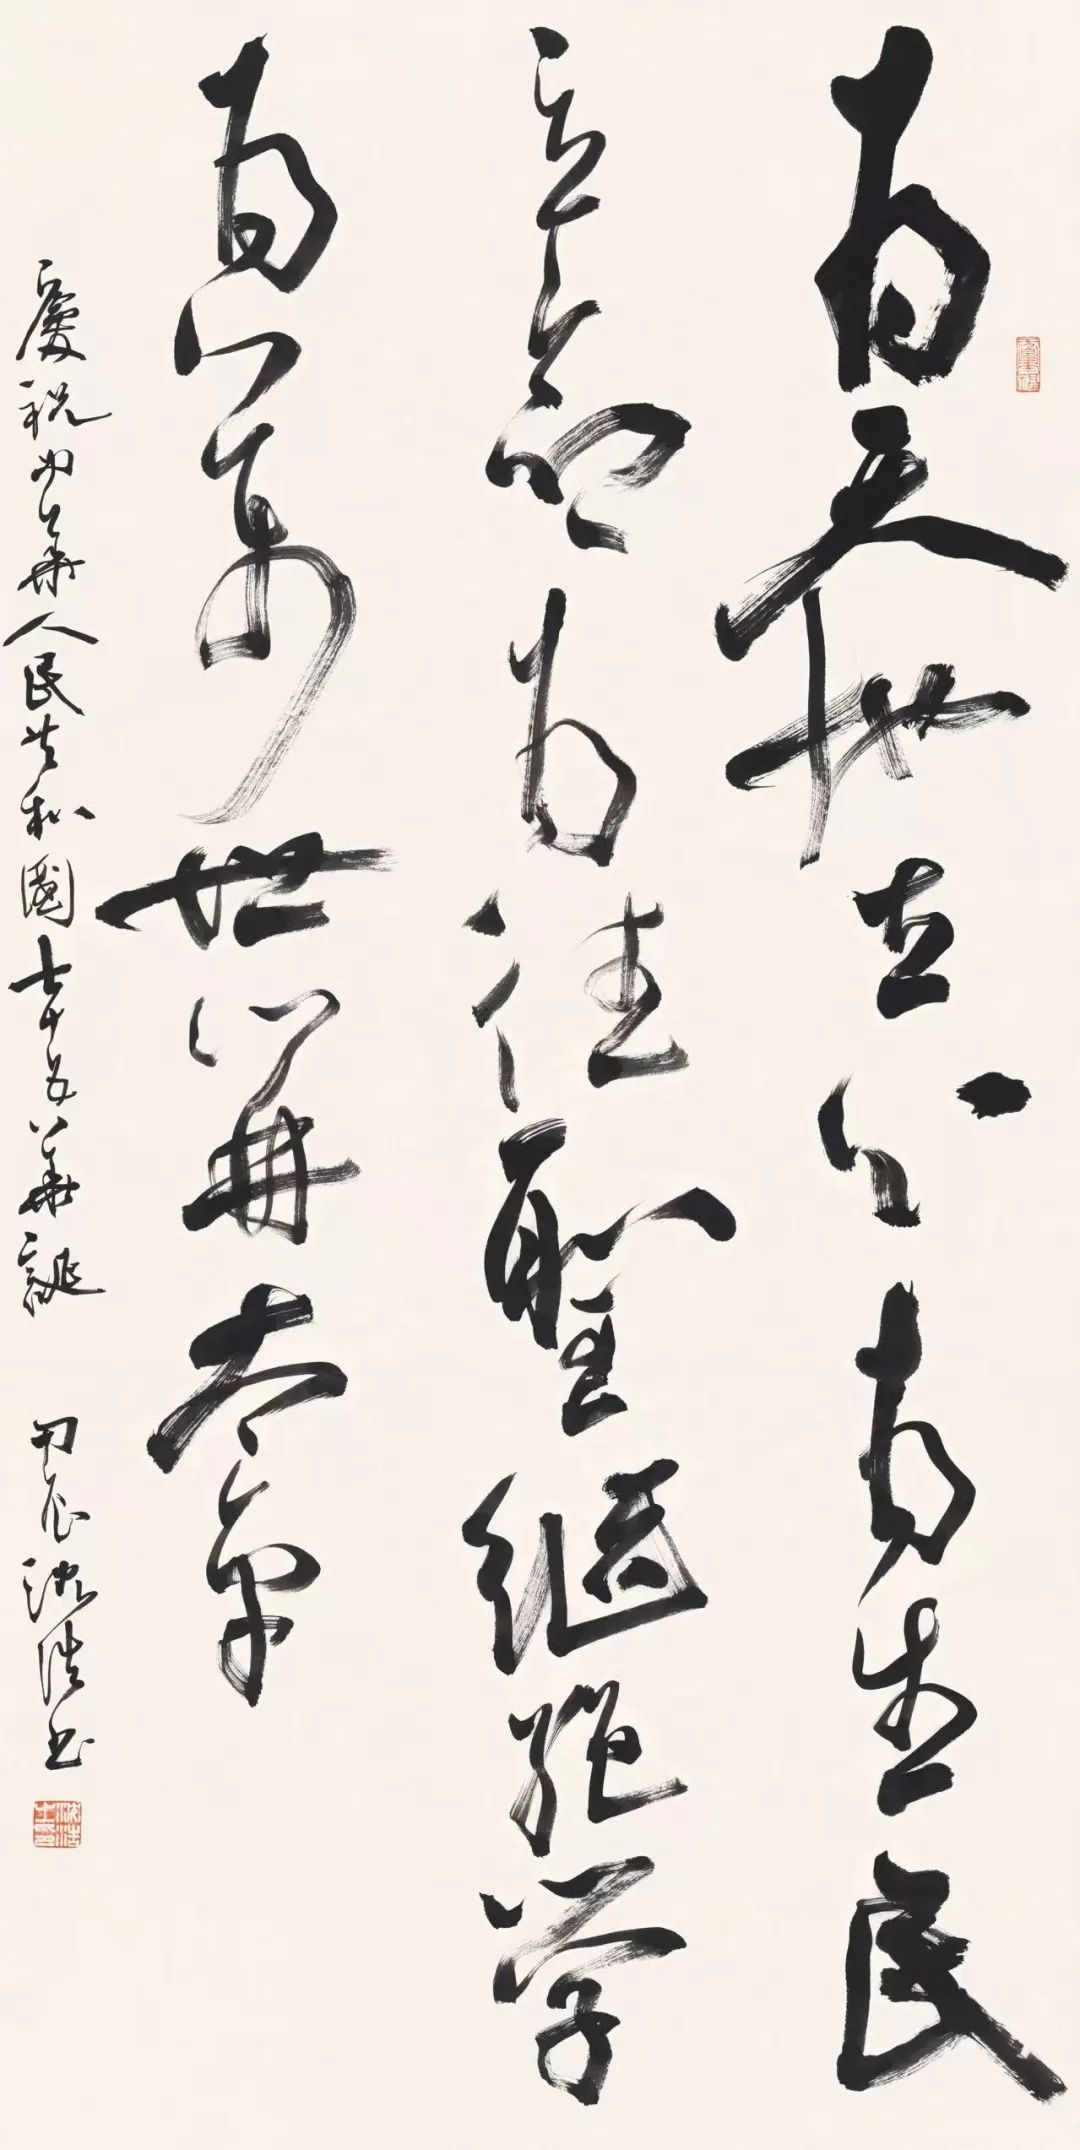 為天地立心為生民
立命為往聖繼絕學
為萬世開太平
慶祝中華人民共和國七十五華誕 甲辰沈浩書